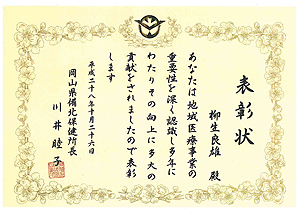 表彰状
柳生良雄 殿
あなたは地域医療事業の
重要性を深く認識し多年に
わたりその向上に多大の
貢献をされましたので表彰
します
平成二十八年十月二十六日
岡山県備北保健所長
川井睦子